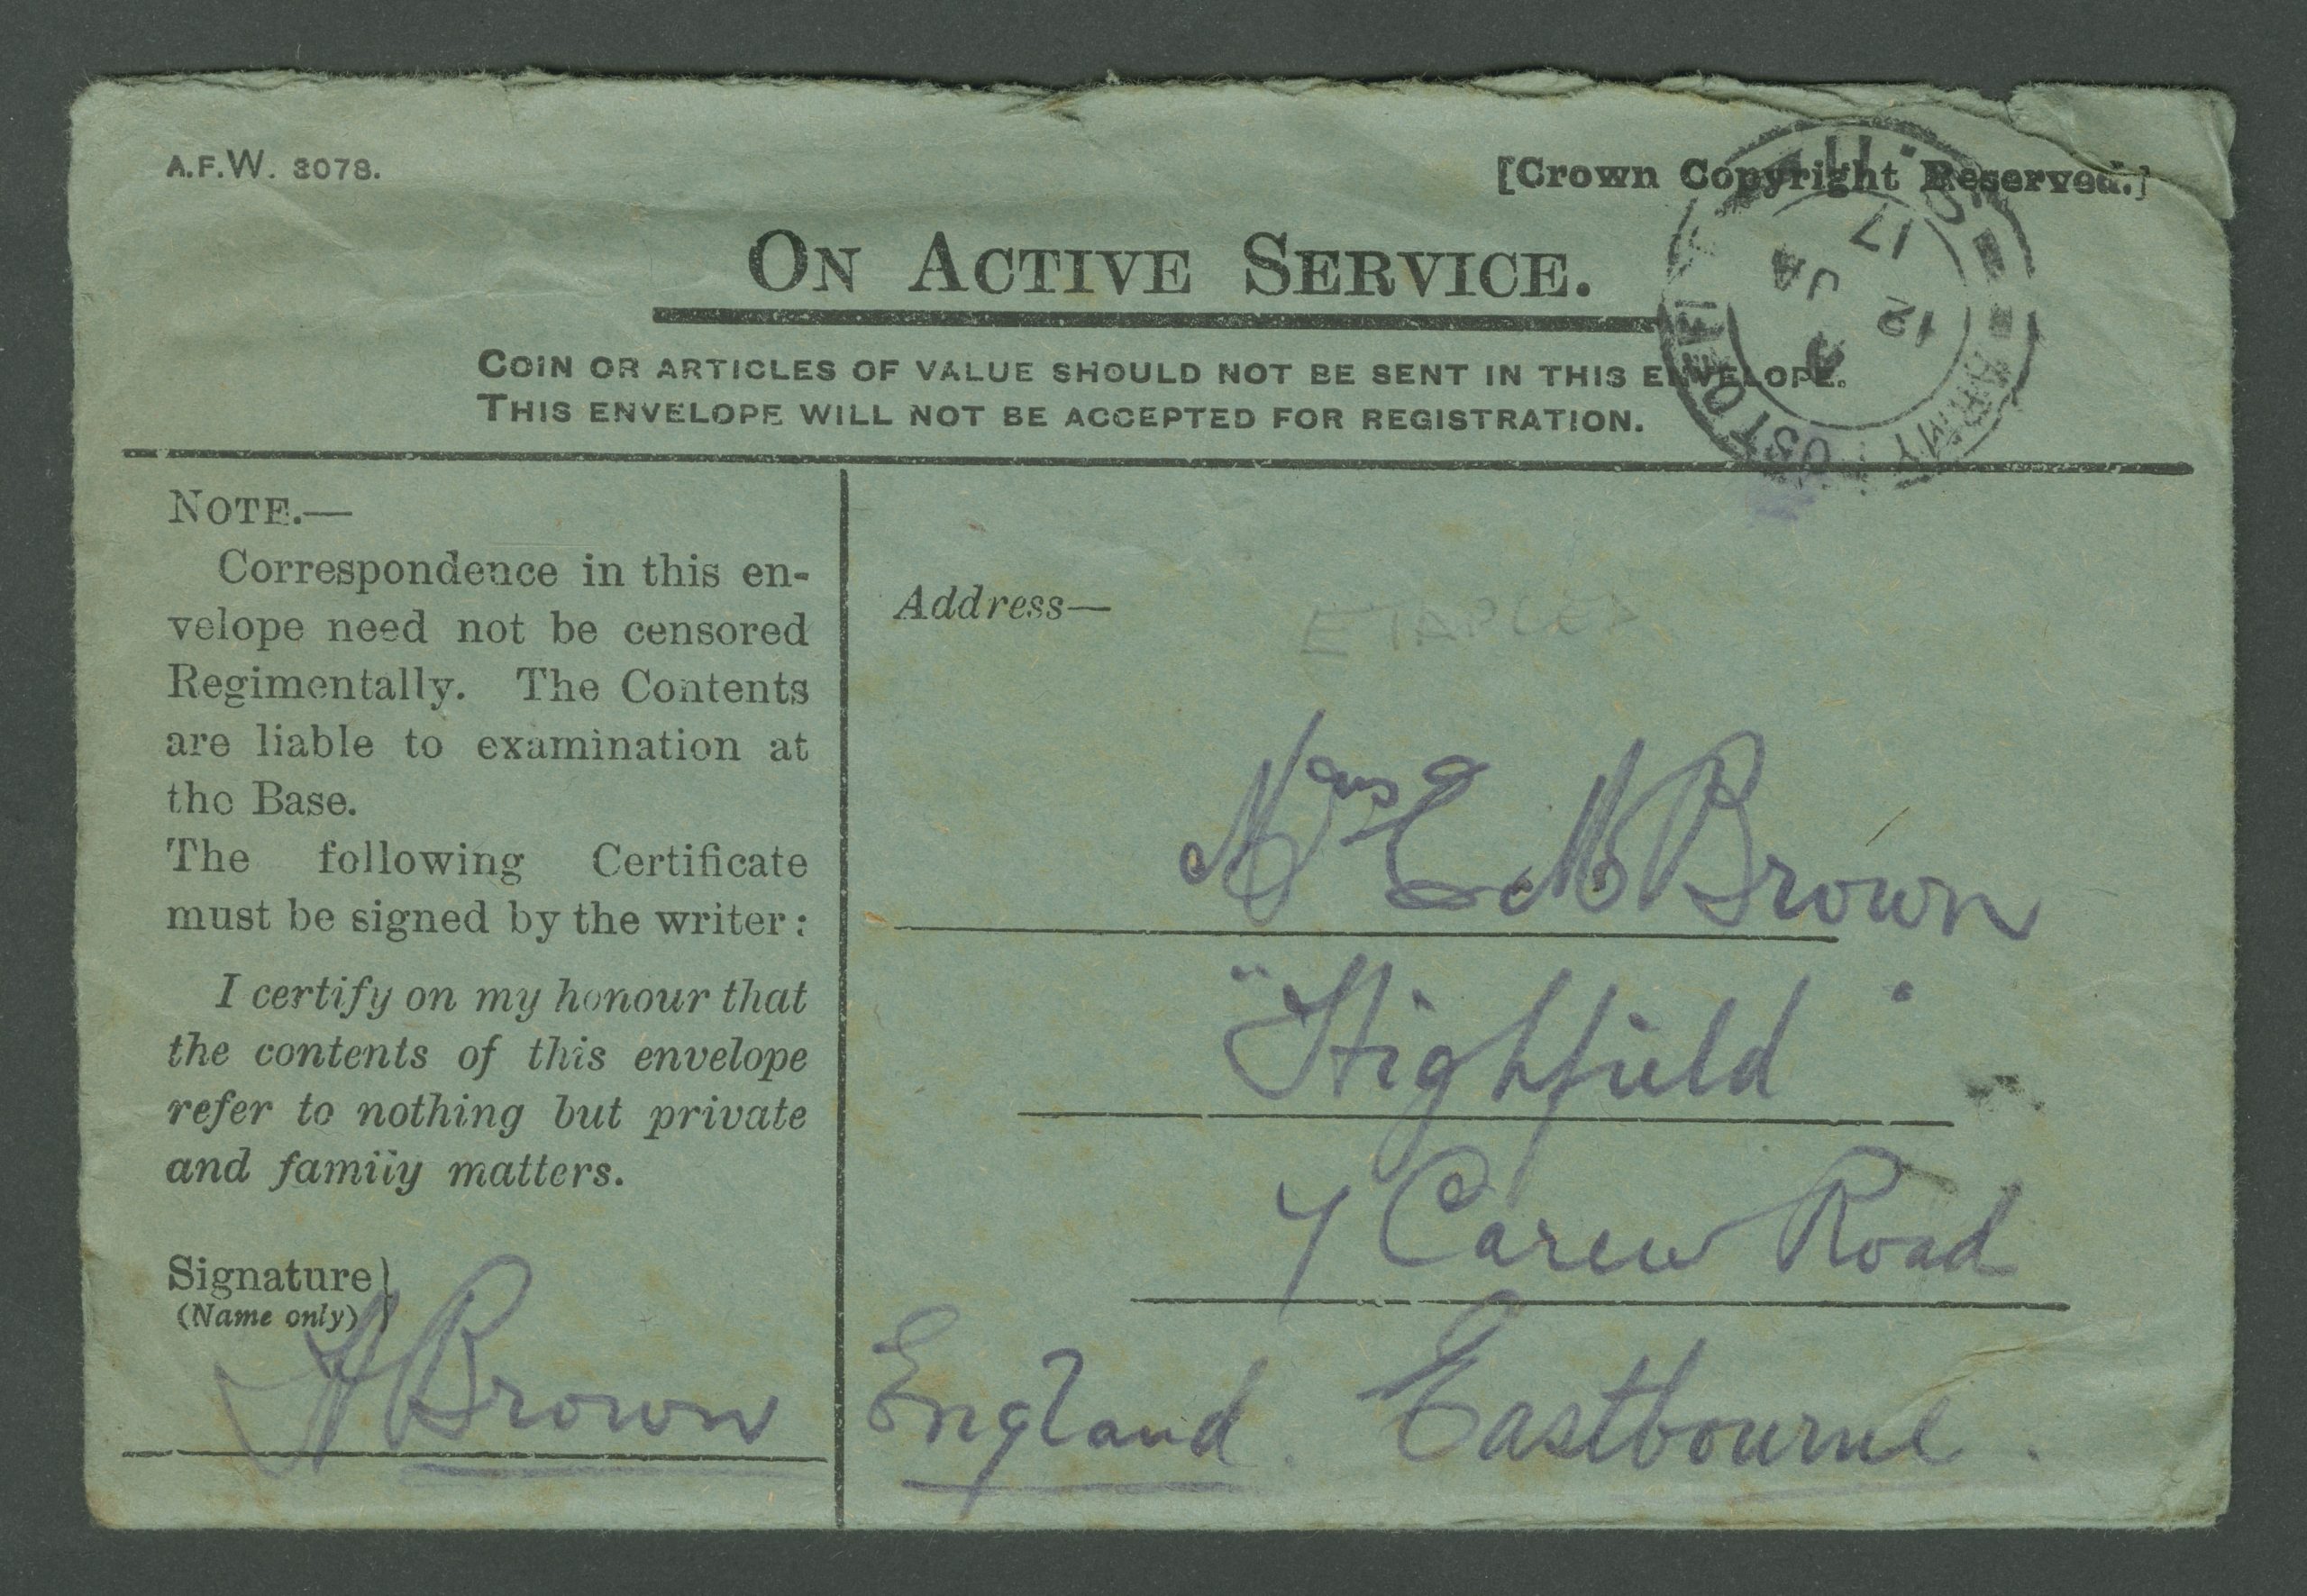 A.F.W. 3078.
[Crown Copyright Reserved.]
ON ACTIVE SERVICE.
COIN OR ARTICLES OF VALUE SHOULD NOT BE SENT IN THIS ENVELOPE.
THIS ENVELOPE WILL NOT BE ACCEPTED FOR REGISTRATION.
ARMY POST OFFICE
12 JA
17
NOTE.—
Correspondence in this en-
velope need not be censored
Regimentally. The Contents
are liable to examination at
the Base.
The following Certificate
must be signed by the writer:
I certify on my honour that
the contents of this envelope
refer to nothing but private
and family matters.
Signature}
(Name only)
H Brown
Address—
ETAPLES
Mrs E M Brown
"Highfield"
7 Carew Road
England. Eastbourne.